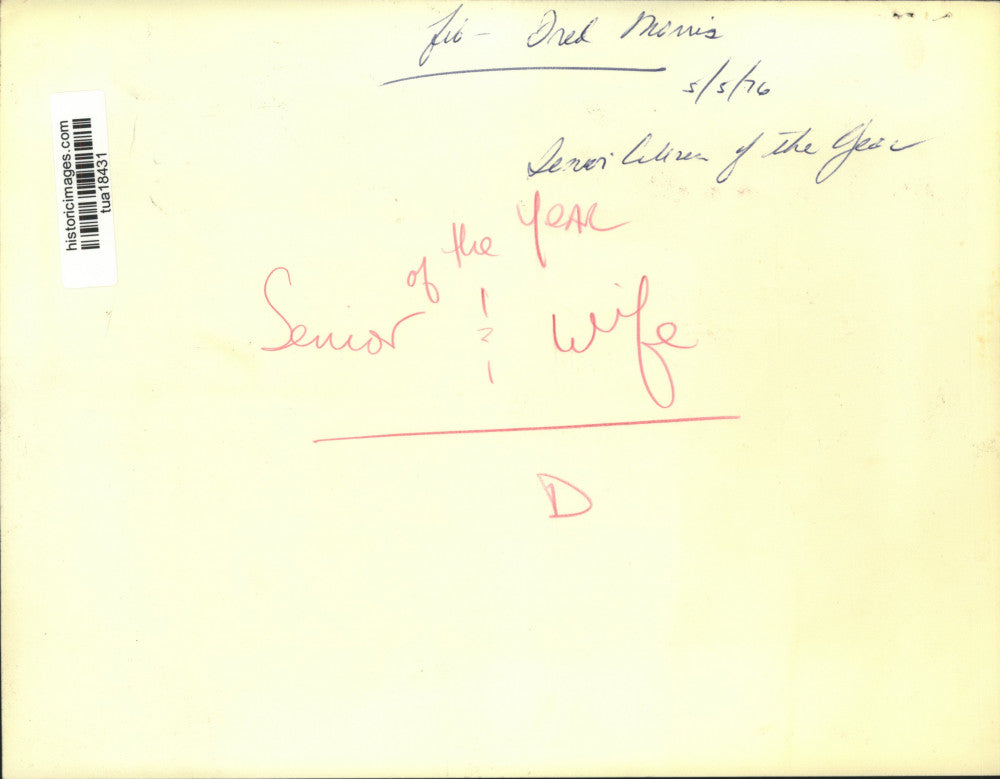 Dred Morris
5/5/76
Senior Citizen of the Year
historicimages.com
tua18431
Senior of the YEAR
& Wife
D